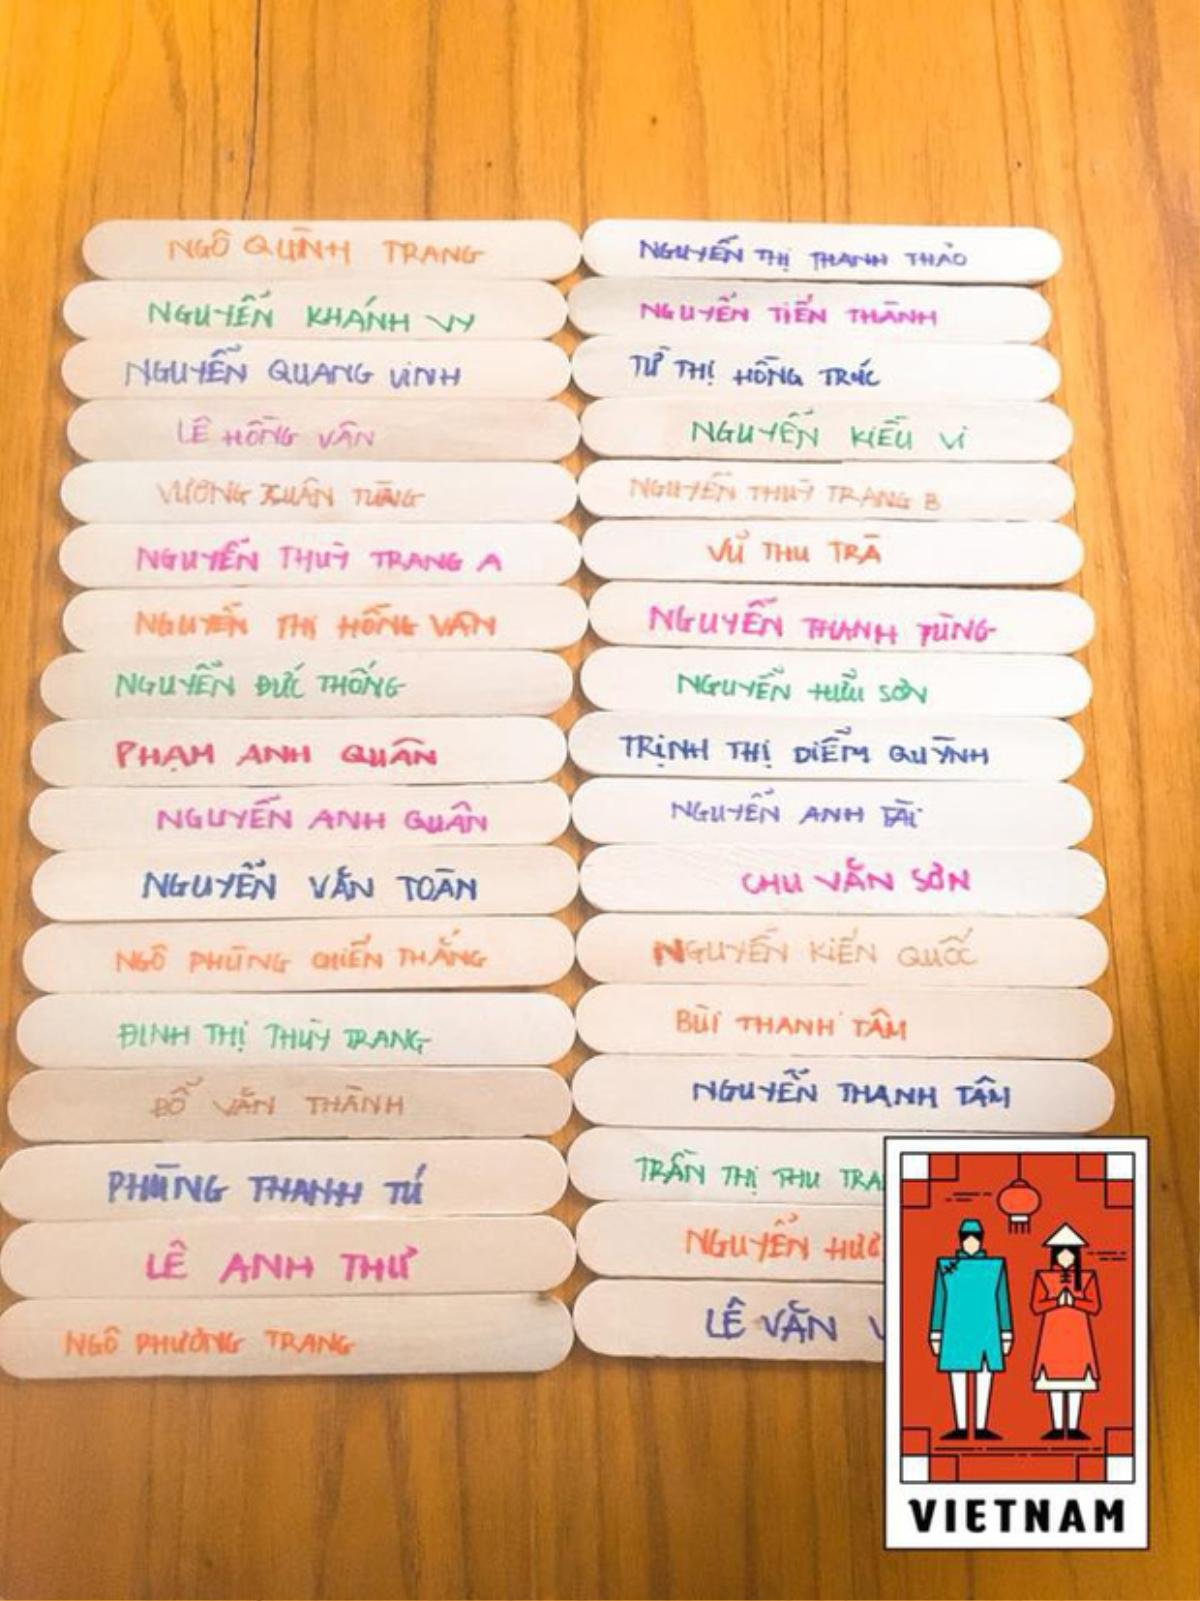 NGÔ QUỲNH TRANG
NGUYỄN KHÁNH VY
NGUYỄN QUANG VINH
LÊ HỒNG VÂN
VƯƠNG XUÂN TÙNG
NGUYỄN THUỲ TRANG A
NGUYỄN THỊ HỒNG VÂN
NGUYỄN ĐỨC THỐNG
PHẠM ANH QUÂN
NGUYỄN ANH QUÂN
NGUYỄN VĂN TOÀN
NGÔ PHÙNG QUIẾN THẮNG
ĐINH THỊ THUỲ TRANG
ĐỖ VĂN THÀNH
PHÙNG THANH TÚ
LÊ ANH THƯ
NGÔ PHƯƠNG TRANG
NGUYỄN THỊ THANH THẢO
NGUYỄN TIẾN THÀNH
TỪ THỊ HỒNG TRÚC
NGUYỄN KIỀU VI
NGUYỄN THUỲ TRANG B
VŨ THU TRÀ
NGUYỄN THANH TÙNG
NGUYỄN HỮU SƠN
TRỊNH THỊ DIỄM QUỲNH
NGUYỄN ANH TÀI
CHU VĂN SƠN
NGUYỄN KIẾN QUỐC
BÙI THANH TÂM
NGUYỄN THANH TÂM
TRẦN THỊ THU TRA
NGUYỄN
LÊ VĂN V
VIETNAM